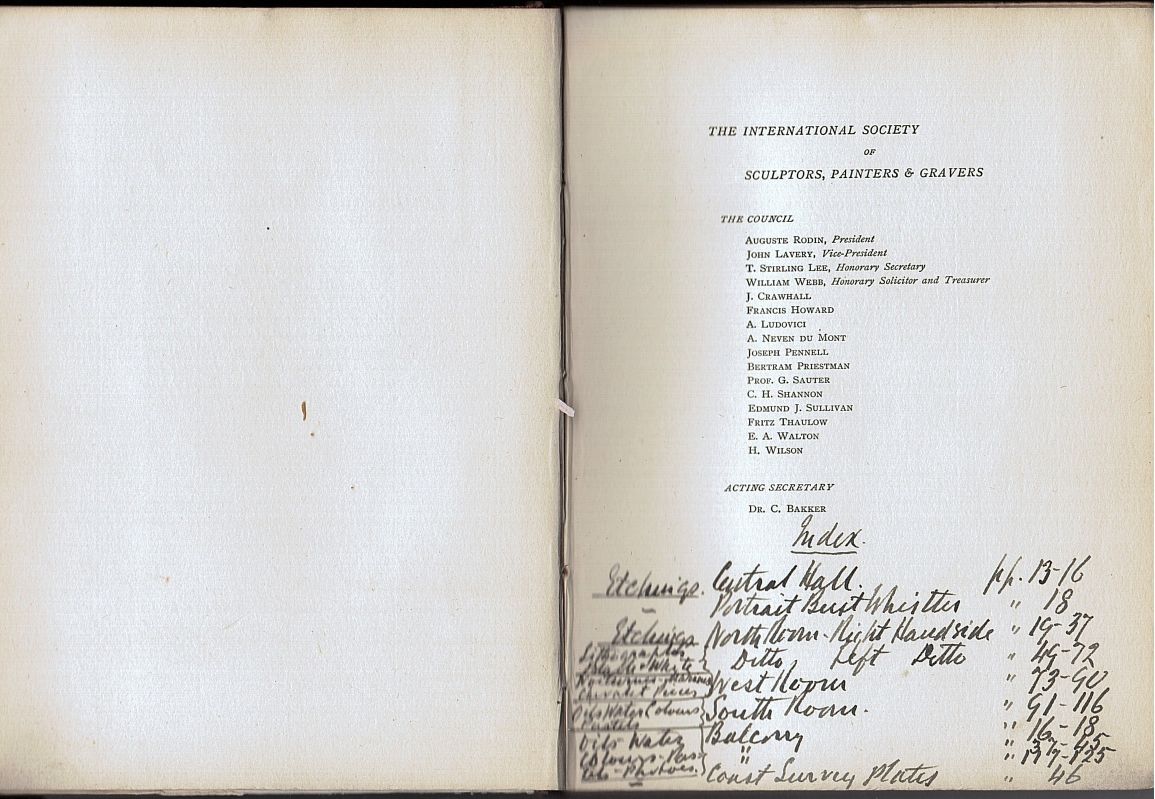 THE INTERNATIONAL SOCIETY
OF
SCULPTORS, PAINTERS & GRAVERS
THE COUNCIL
AUGUSTE RODIN, President
JOHN LAVERY, Vice-President
T. STIRLING LEE, Honorary Secretary
WILLIAM WEBB, Honorary Solicitor and Treasurer
J. CRAWHALL
FRANCIS HOWARD
A. LUDOVICI
A. NEVEN DU MONT
JOSEPH PENNELL
BERTRAM PRIESTMAN
PROF. G. SAUTER
C. H. SHANNON
EDMUND J. SULLIVAN
FRITZ THAULOW
E. A. WALTON
H. WILSON
ACTING SECRETARY
DR. C. BAKKER
Index.
Etchings. Central Hall. pp. 13-16
Portrait Bust Whistler " 18
Etchings North Room - Right Handside " 19-37
Lithographs Ditto Left Ditto " 49-72
West Room " 73-90
Oils Water Colours Pastels South Room. " 91-116
Oils Water Balcony " 16-18
Colours " "
Coast Survey Plates " 46